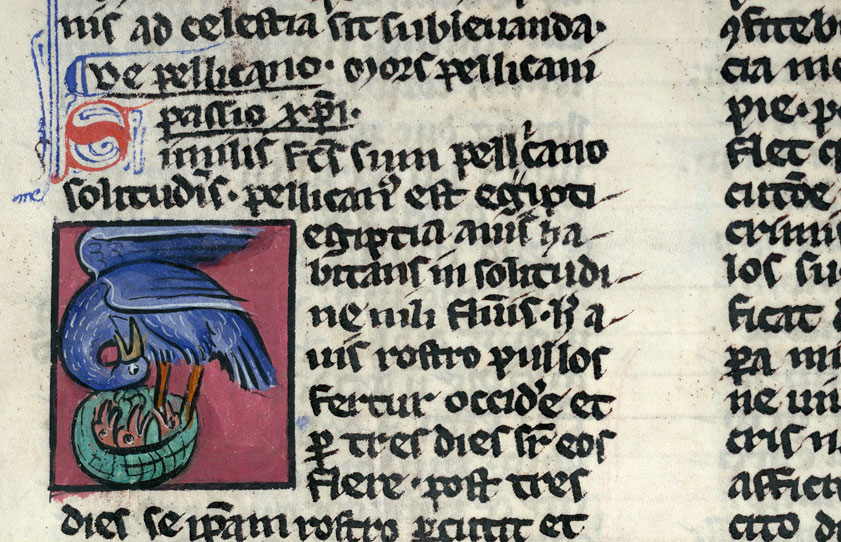 nis ad celestia sit subleuanda·
De pellicano· Mors pellicani
passio x̄p̄i·
Similis fc̄s sum pellicano
solitudīs· pellicanꝰ est egipti
egiptia auis ha
bitans in solitudi
ne nili fluīs· h̄ a
uis rostro pullos
fertur occid̄e et
ꝑ tres dies sr̄ eos
flere· post tres
dies se ip̄am rostro ꝑcutit et
ꝯfiteb
cia me
pie· p
flet
crimi
los su
ficat d
ꝑa mi
ne uni
cris n
cito di